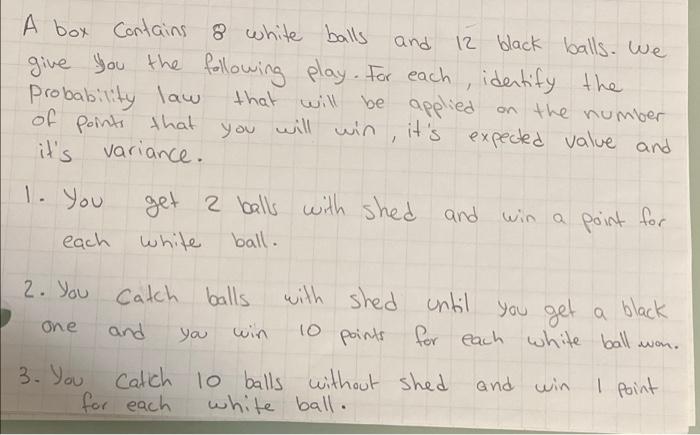 A box contains 8 white balls and 12 black balls. We
give you the following play. For each, identify the
probability law that will be applied on the number
of points that you will win, it's expected value and
it's variance.
1. You get 2 balls with shed and win a point for
each white ball.
2. You catch balls with shed until you get a black
one and you win 10 points for each white ball won.
3. You catch 10 balls without shed and win 1 point
for each white ball.